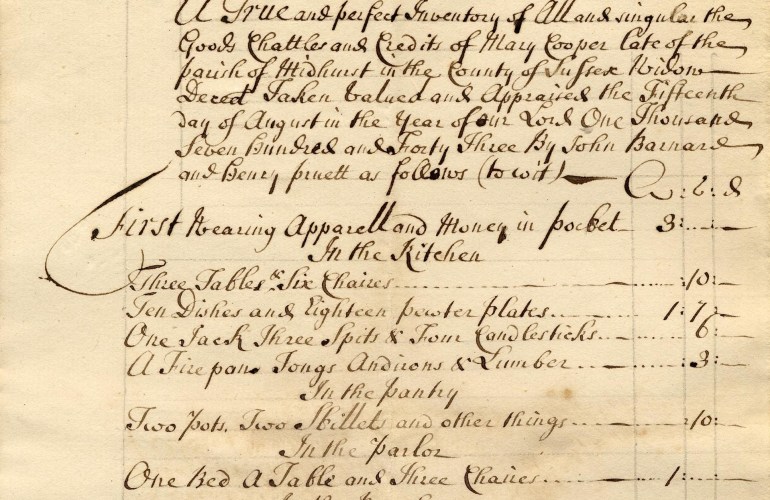 A True and perfect Inventory of All and singular the
Goods Chattles and Credits of Mary Cooper late of the
parish of Midhurst in the County of Sussex Widow
Deced Taken Valued and Appraised the Fifteenth
day of August in the Year of our Lord One Thousand
Seven hundred and Forty Three By John Barnard
and henry pruett as follows (to wit)
First Wearing Apparell and Money in pocket 3:
In the Kitchen
Three Tables & Six Chaires :10:
Ten Dishes and Eighteen pewter plates 1:7:
One Jack Three Spits & Four Candlesticks 6:
A Firepan Tongs Andirons & Lumber :3:
In the pantry
Two pots, Two Skillets and other things 10:
In the parlor
One Bed A Table and Three Chaires 1:
In the